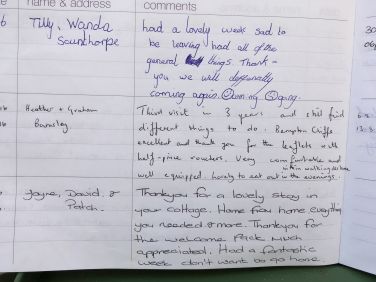 name & address
comments
Tilly, Wanda
Scunthorpe
had a lovely week sad to
be leaving had all of the
general things. Thank-
you we will deffenally
coming again.
Heather + Graham
Barnsley
Third visit in 3 years and still find
different things to do. Bempton Cliffs
excellent and thank you for the leaflets with
half-price vouchers. Very comfortable and
well equipped. Lovely to eat out in the evenings.
within walking distance
Jayne, David &
Patch.
Thankyou for a lovely stay in
your cottage. Home from home everything
you needed & more. Thankyou for
the welcome pack much
appreciated. Had a fantastic
week don't want to go home.